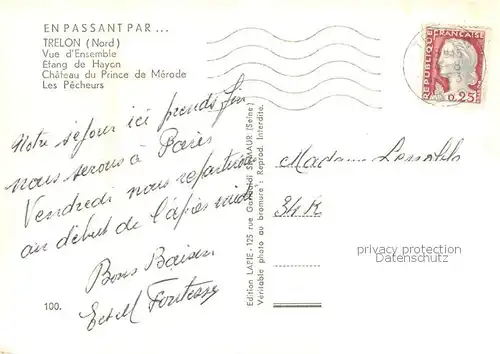 EN PASSANT PAR ...
TRELON (Nord)
Vue d'Ensemble
Étang de Hayon
Château du Prince de Mérode
Les Pêcheurs
RÉPUBLIQUE FRANÇAISE
0,25
Notre séjour ici prends fin
nous serons à Paris
Vendredi nous repartirons
au début de l'après midi
Bons Baisers
100.
Edition LAPIE - 125 rue Garibaldi St-MAUR (Seine)
Véritable photo au bromure : Reprod. Interdite.
Madame
34 K
privacy protection
Datenschutz